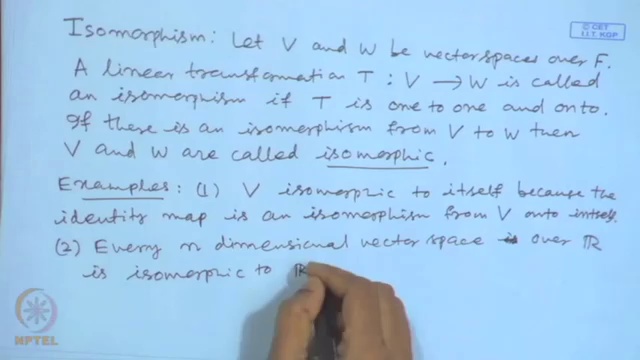 © CET
I.I.T. KGP
Isomorphism: Let V and W be vector spaces over F.
A linear transformation T : V → W is called
an isomorphism if T is one to one and onto.
If there is an isomorphism from V to W then
V and W are called isomorphic.
Examples: (1) V isomorphic to itself because the
identity map is an isomorphism from V onto intself.
(2) Every n dimensional vector space over ℝ
is isomorphic to ℝ
NPTEL